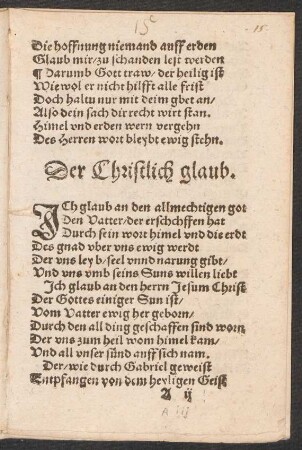 15c
15.
Die hoffnung niemand auff erden
Glaub mir/zu schanden lest werden
¶ Darumb Gott traw/der heilig ist
Wie wol er nicht hilfft alle frist
Doch halt nur mit deim gbet an/
Also dein sach dir recht wirt stan.
Himel vnd erden wern vergehn
Des Herren wort bleybt ewig stehn.
Der Christlich glaub.
ICh glaub an den allmechtigen got
Den Vatter/der erschchffen hat
Durch sein wort himel vnd die erdt
Des gnad vber vns ewig werdt
Der vns ley b/seel vnnd narung gibt/
Vnd vns vmb seins Suns willen liebt
Jch glaub an den herrn Jesum Christ
Der Gottes einiger Sun ist/
Vom Vatter ewig her geborn/
Durch den all ding geschaffen sind worn
Der vns zum heil vom himel kam/
Vnd all vnser sünd auff sich nam.
Der/wie durch Gabriel geweist
Entpfangen von dem heyligen Geist
A ij
A iij